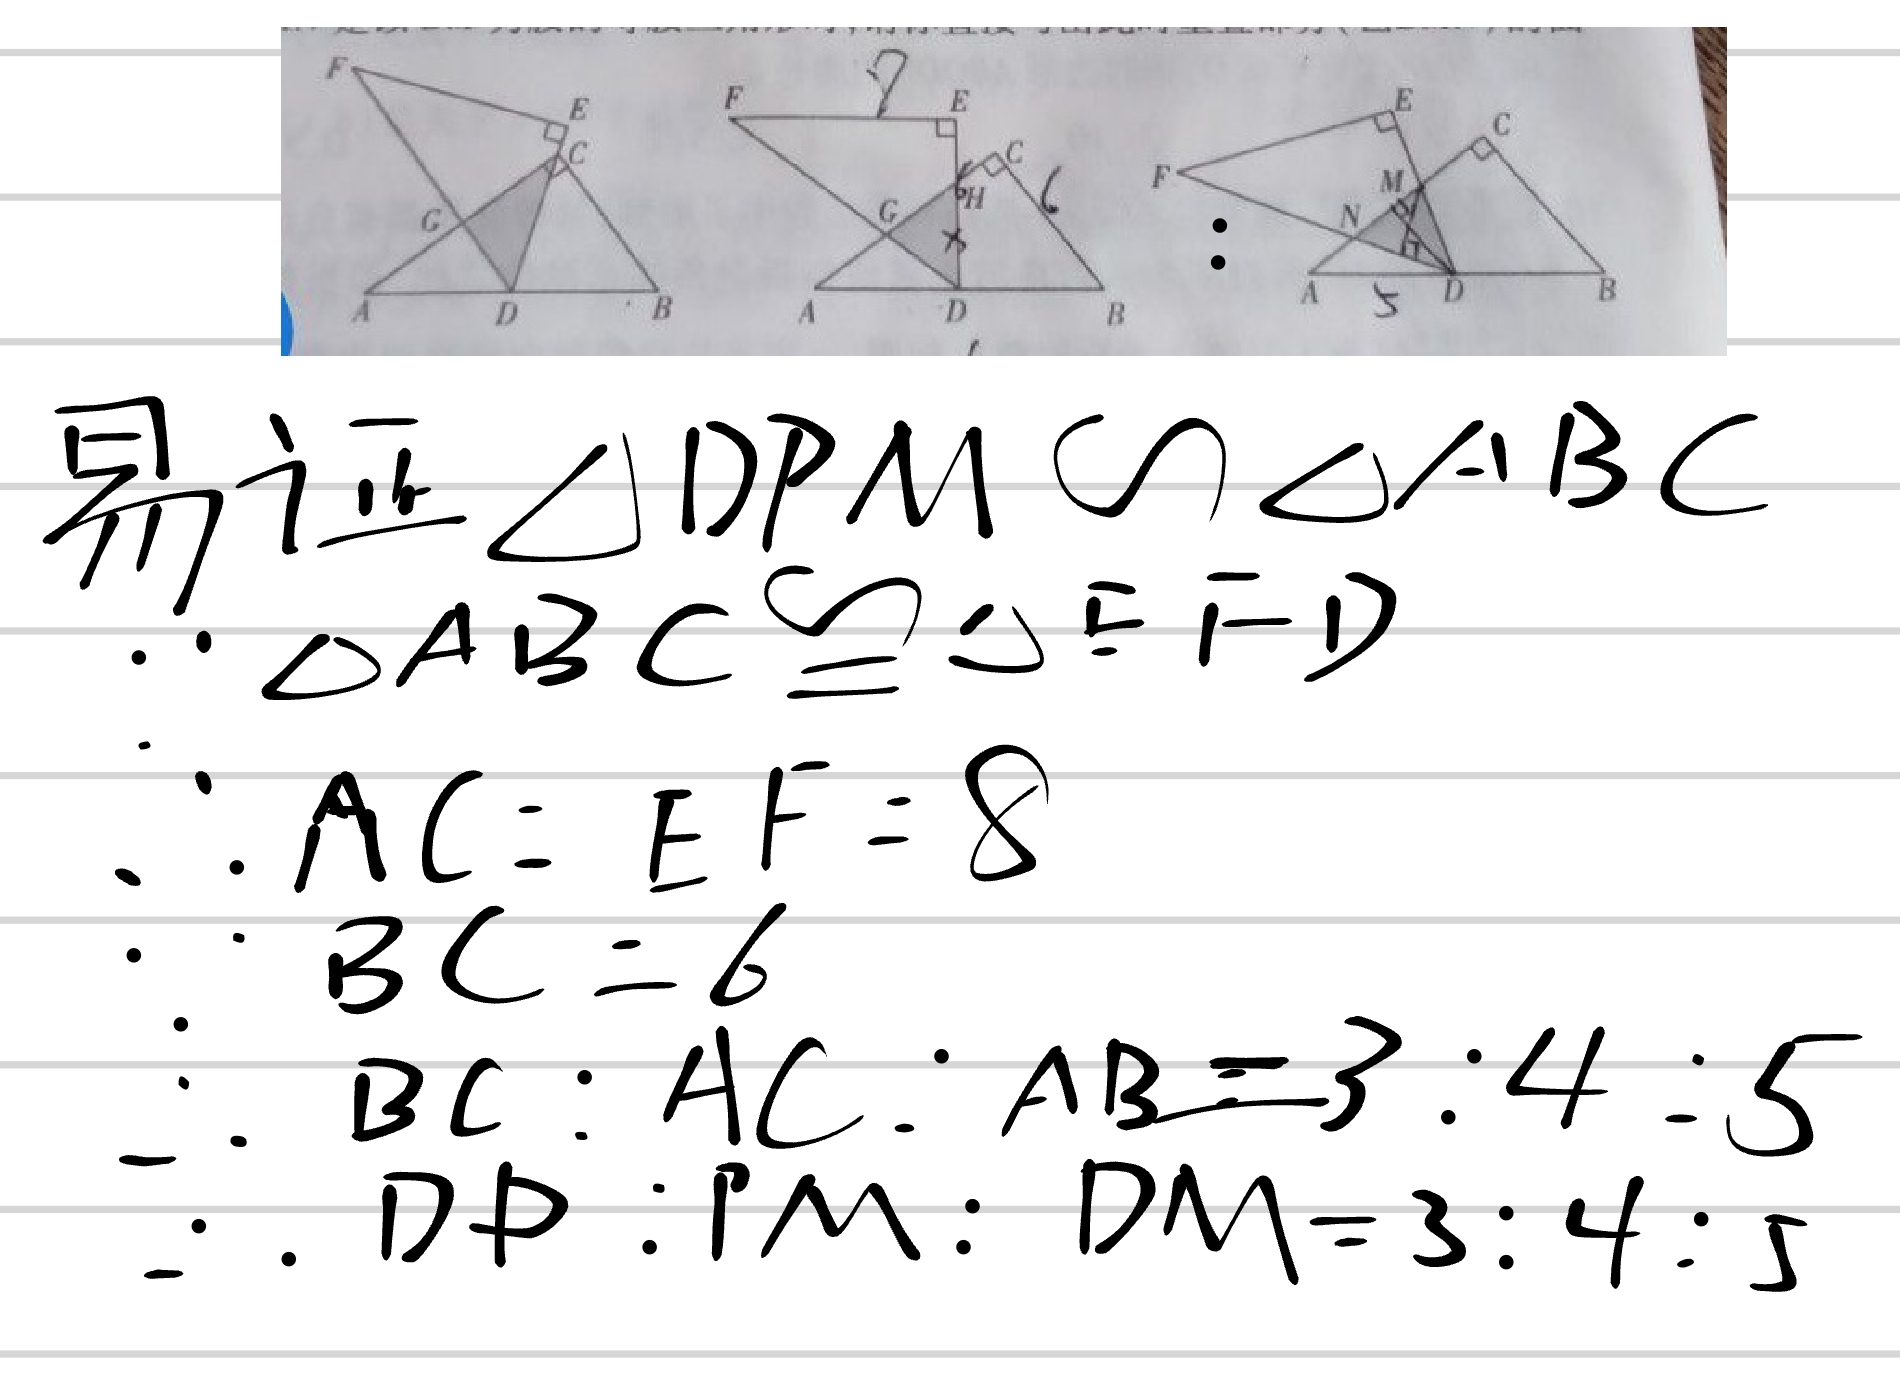 F E C G A D B
F ? E C H 6 G x A D B
E C F M N A 5 D B
易证△DPM∽△ABC
∵△ABC≌△EFD
∴AC=EF=8
∵BC=6
∴BC:AC:AB=3:4:5
∴DP:PM:DM=3:4:5